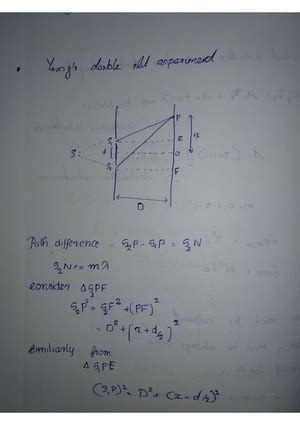 Young's double slit experiment
P
S₁
E
x
S
d
O
S₂
F
D
Path difference = S₂P - S₁P = S₂N
S₂N = mλ
consider Δ S₂PF
S₂P² = S₂F² + (PF)²
= D² + (x + d/2)²
similiarly from
Δ S₁PE
(S₁P)² = D² + (x - d/2)²